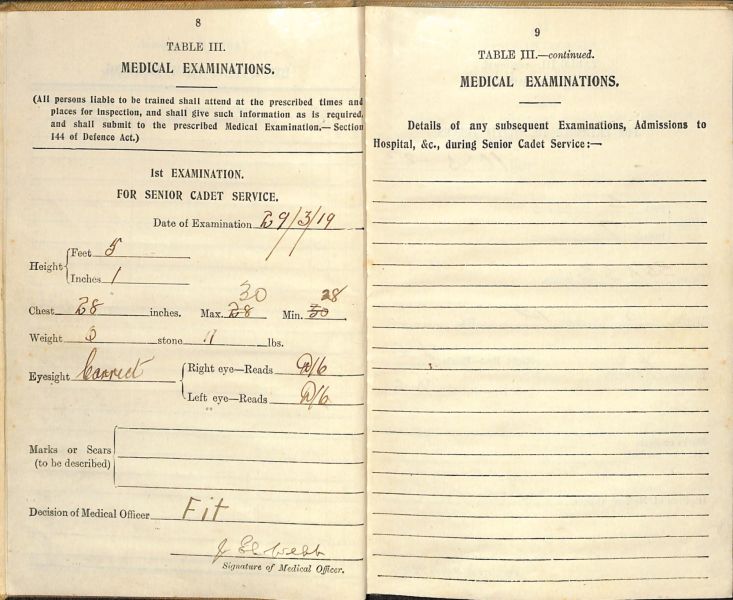 8
TABLE III.
MEDICAL EXAMINATIONS.
(All persons liable to be trained shall attend at the prescribed times and
places for inspection, and shall give such information as is required,
and shall submit to the prescribed Medical Examination.—Section
144 of Defence Act.)
1st EXAMINATION.
FOR SENIOR CADET SERVICE.
Date of Examination 29/3/19
Height Feet 5
Inches 1
30 28
Chest 28 inches. Max. 28 Min. 30.
Weight stone 11 lbs.
Eyesight Correct Right eye—Reads
Left eye—Reads
Marks or Scars
(to be described)
Decision of Medical Officer Fit
Webb
Signature of Medical Officer.
9
TABLE III.—continued.
MEDICAL EXAMINATIONS.
Details of any subsequent Examinations, Admissions to
Hospital, &c., during Senior Cadet Service:—